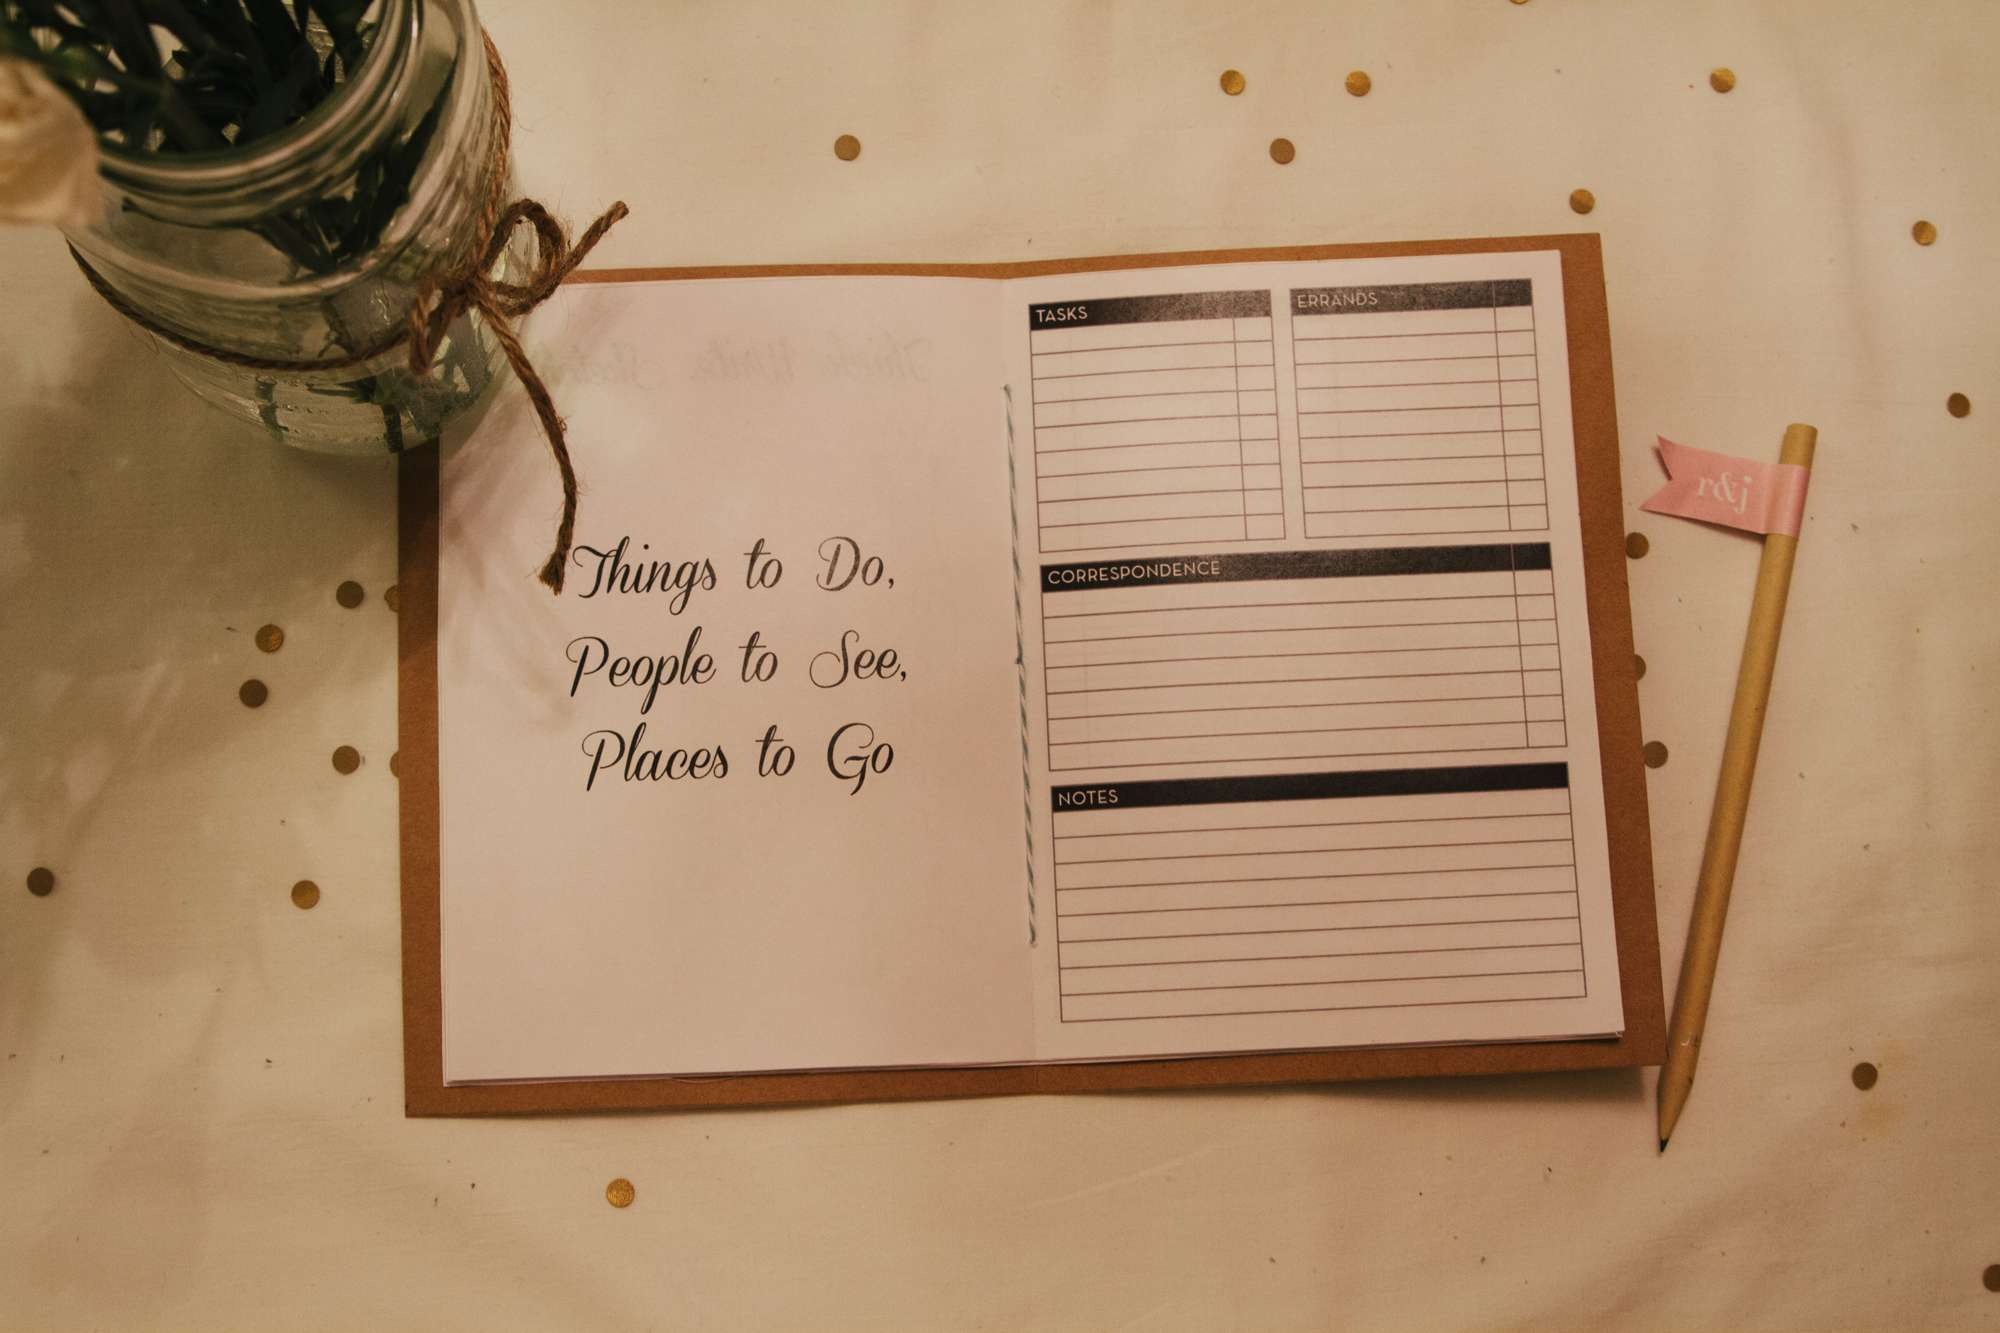 Things to Do,
People to See,
Places to Go
TASKS
ERRANDS
CORRESPONDENCE
NOTES
r&j